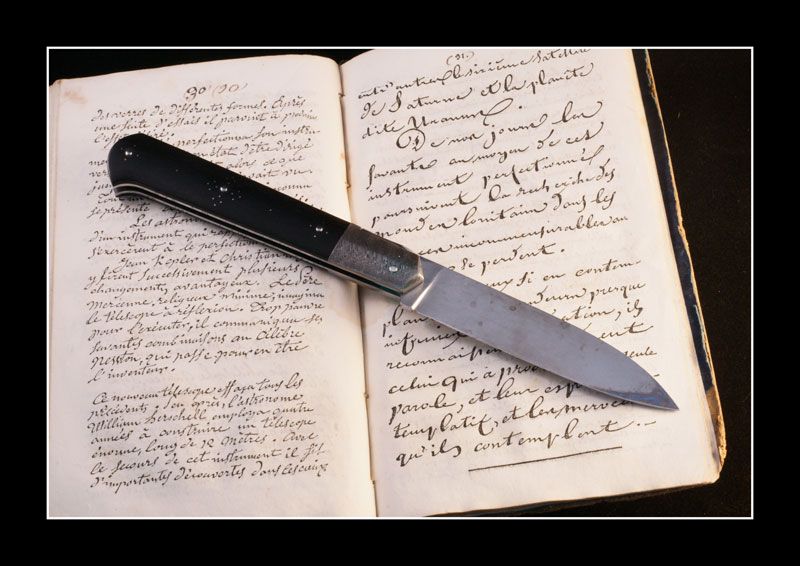 90
des verres de différentes formes. Après
une suite d'essais il parvint à
perfectionna son instru-
d'être dirigé
alors ce que
se présente
Les astro
d'un instrument qui
s'exercèrent à le perfection
Jean Kepler et Christian
y firent successivement plusieurs
changements avantageux. Le Père
Mercenne, religieux minime, imagina
le télescope à réflexion. Trop pauvre
pour l'exécuter, il communiqua ses
savantes combinaisons au célèbre
Newton, qui passe pour en être
l'inventeur.
Ce nouveau télescope effaça tous les
précédents. Peu après, l'astronome
William Herschell employa quatre
années à construire un télescope
énorme, long de 12 mètres. Avec
le secours de cet instrument il fit
d'importantes découvertes dans les cieux
(91.)
entr'autres le sixième satellite
de Saturne et la planète
dite Uranus.
De nos jours les
savants au moyen de cet
instrument perfectionné
poursuivent la recherche des
mondes lointains dans les
incommensurables où
se perdent.
si en contem-
presque
il,
celui qui a
parole, et leur
templatif, et les
qu'ils contemplent.